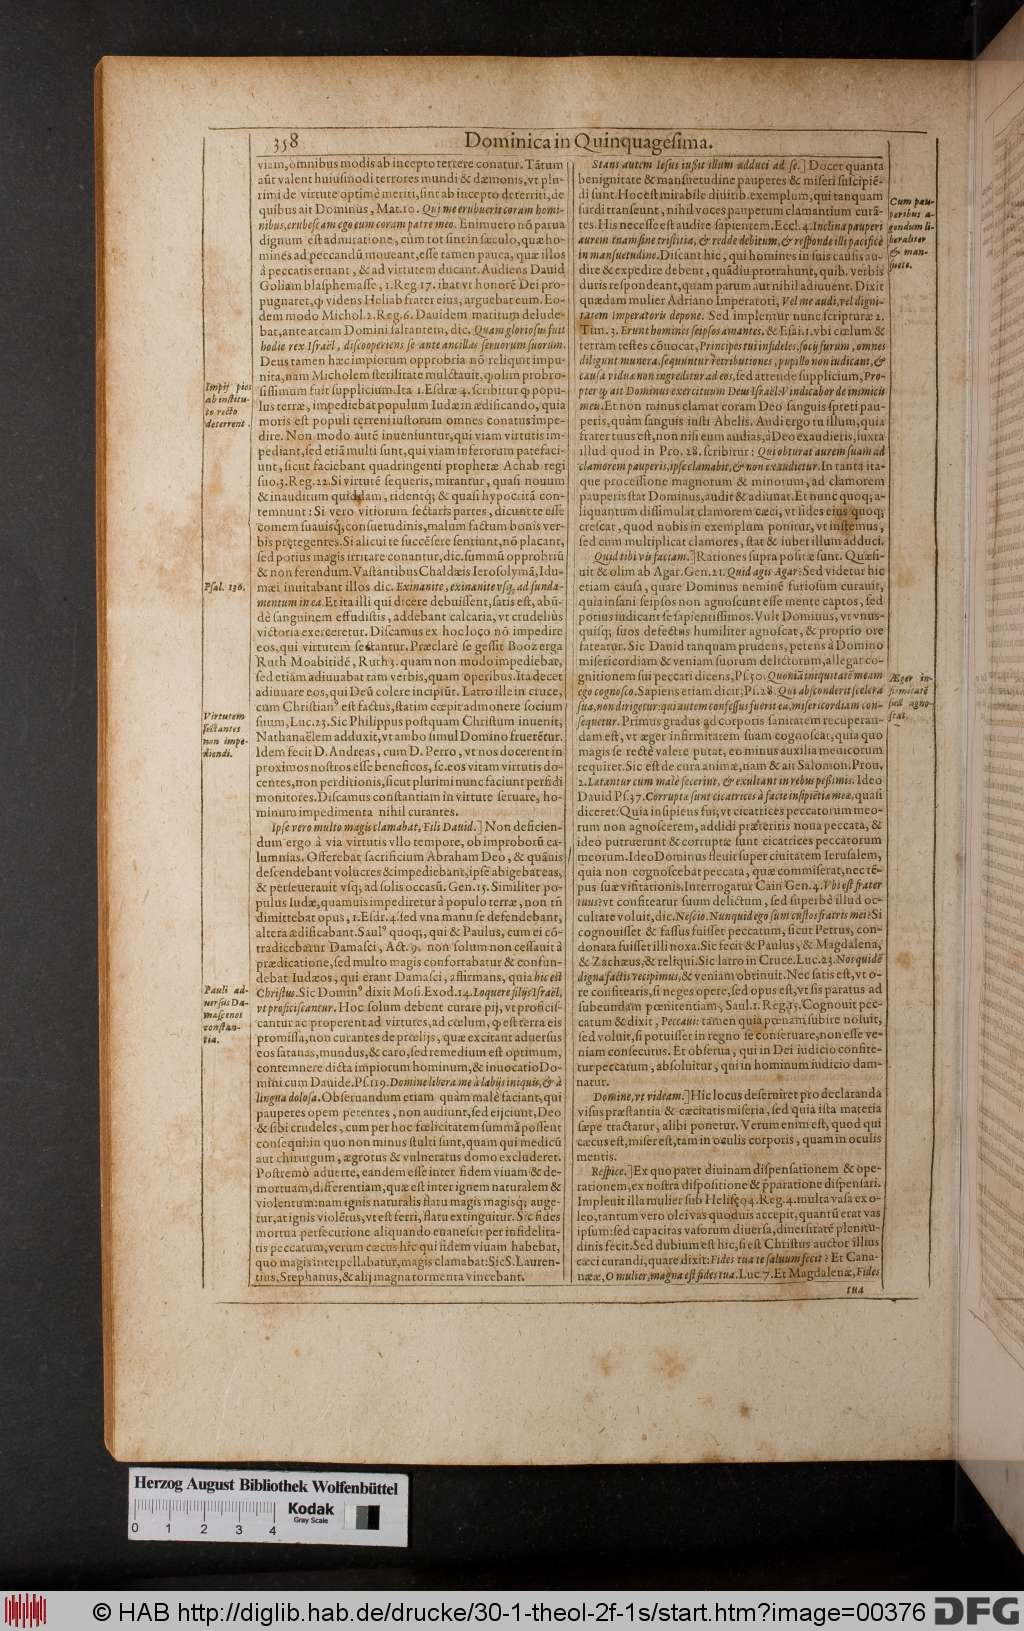 358 Dominica in Quinquagesima.
viam, omnibus modis ab incepto terrere conatur. Tãtum
aũt valent huiusmodi terrores mundi & dæmonis, vt plu-
rimi de virtute optimè meriti, sint ab incepto deterriti, de
quibus ait Dominus, Mat. 10. Qui me erubuerit coram homi-
nibus, erubescam ego eum coram patre meo. Enimuero nõ parua
dignum est admiratione, cùm tot sint in sæculo, quæ ho-
mines ad peccandũ moueant, esse tamen pauca, quæ illos
à peccatis eruant, & ad virtutem ducant. Audiens Dauid
Goliam blasphemasse, 1. Reg. 17. ibat vt honorẽ Dei pro-
pugnaret, ꝙ videns Heliab frater eius, arguebat eum. Eo-
dem modo Michol. 2. Reg. 6. Dauidem maritum delude-
bat, ante arcam Domini saltantem, dic. Quam gloriosus fuit
hodie rex Israël, discooperiens se ante ancillas seruorum suorum.
Deus tamen hæc impiorum opprobria nõ reliquit impu-
nita, nam Micholem sterilitate mulctauit, ꝙ olim probro-
sissimum fuit supplicium. Ita 1. Esdræ 4. scribitur ꝙ popu-
lus terræ, impediebat populum Iudæ in ædificando, quia
moris est populi terreni iustorum omnes conatus impe-
dire. Non modo autẽ inueniuntur, qui viam virtutis im-
pediant, sed etiã multi sunt, qui viam inferorum patefaci-
unt, sicut faciebant quadringenti prophetæ Achab regi
suo. 3. Reg. 22. Si virtutẽ sequeris, mirantur, quasi nouum
& inauditum quiddam, ridentq́; & quasi hypocritã con-
temnunt: Si vero vitiorum sectaris partes, dicunt te esse
comem suauisq́; consuetudinis, malum factum bonis ver-
bis prętegentes. Si alicui te succẽsere sentiunt, nõ placant,
sed potius magis irritare conantur, dic. summũ opprobriũ
& non ferendum. Vastantibus Chaldæis Ierosolymã, Idu-
mæi inuitabant illos dic. Exinanite, exinanite vsq; ad funda-
mentum in ea. Et ita illi qui dicere debuissent, satis est, abũ-
dè sanguinem effudistis, addebant calcaria, vt crudeliùs
victoria exerceretur. Discamus ex hoc loco nõ impedire
eos, qui virtutem sectantur. Præclarè se gessit Booz erga
Ruth Moabitidẽ, Ruth 3. quam non modo impediebat,
sed etiam adiuuabat tam verbis, quam operibus. Ita decet
adiuuare eos, qui Deũ colere incipiũt. Latro ille in cruce,
cum Christian⁹ est factus, statim cœpit admonere socium
suum, Luc. 23. Sic Philippus postquam Christum inuenit,
Nathanaëlem adduxit, vt ambo simul Domino fruerẽtur.
Idem fecit D. Andreas, cum D. Petro, vt nos docerent in
proximos nostros esse beneficos, sc. eos vitam virtutis do-
centes, non perditionis, sicut plurimi nunc faciunt perfidi
monitores. Discamus constantiam in virtute seruare, ho-
minum impedimenta nihil curantes.
Ipse vero multo magis clamabat, Fili Dauid.] Non deficien-
dum ergo à via virtutis vllo tempore, ob improborũ ca-
lumnias. Offerebat sacrificium Abraham Deo, & quãuis
descendebant volucres & impediebant, ipse abigebat eas,
& perseuerauit vsq; ad solis occasũ. Gen. 15. Similiter po-
pulus Iudæ, quamuis impediretur à populo terræ, non tñ
dimittebat opus, 1. Esdr. 4. sed vna manu se defendebant,
altera ædificabant. Saul⁹ quoq;, qui & Paulus, cum ei cõ-
tradicebatur Damasci, Act. 9. non solum non cessauit à
prædicatione, sed multo magis confortabatur & confun-
debat Iudæos, qui erant Damasci, affirmans, quia hic est
Christus. Sic Domin⁹ dixit Mosi. Exod. 14. Loquere filijs Israël,
vt proficiscantur. Hoc solum debent curare pij, vt profici-
cantur ac properent ad virtutes, ad cœlum, ꝙ est terra eis
promissa, non curantes de prœlijs, quæ excitant aduersus
eos satanas, mundus, & caro, sed remedium est optimum,
contemnere dicta impiorum hominum, & inuocatio Do-
mini cum Dauide. Ps. 119. Domine libera me à labijs iniquis, & à
lingua dolosa. Obseruandum etiam quàm malè faciant, qui
pauperes opem petentes, non audiunt, sed eijciunt, Deo
& sibi crudeles, cum per hoc fœlicitatem summã possent
consequi: in quo non minus stulti sunt, quam qui medicũ
aut chirurgum, ægrotus & vulneratus domo excluderet.
Postremò aduerte, eandem esse inter fidem viuam & de-
mortuam, differentiam, quæ est inter ignem naturalem &
violentum: nam ignis naturalis flatu magis magisq; auge-
tur, at ignis violẽtus, vt est ferri, flatu extinguitur. Sic fides
mortua persecutione aliquando euanescit per infidelita-
tis peccatum, verum cæcus hic qui fidem viuam habebat,
quo magis interpellabatur, magis clamabat: Sic S. Lauren-
tius, Stephanus, & alij magna tormenta vincebant.
Impij pios
ab institu-
to recto
deterrent.
Psal. 136.
Virtutem
sectantes
non impe-
diendi.
Pauli ad-
uersus Da-
mascenos
constan-
tia.
Stans autem Iesus iussit illum adduci ad se.] Docet quanta
benignitate & mansuetudine pauperes & miseri suscipiẽ-
di sunt. Hoc est mirabile diuitib. exemplum, qui tanquam
surdi transeunt, nihil voces pauperum clamantium curã-
tes. His necesse est audire sapientem. Eccl. 4. Inclina pauperi
aurem tuam sine tristitia, & redde debitum, & responde illi pacificè
in mansuetudine. Discant hic, qui homines in suis causis au-
dire & expedire debent, quãdiu protrahunt, quib. verbis
duris respondeant, quam parum aut nihil adiuuent. Dixit
quædam mulier Adriano Imperatori, Vel me audi, vel digni-
tatem Imperatoris depone. Sed implentur nunc scripturæ 2.
Tim. 3. Erunt homines seipsos amantes. & Esai. 1. vbi cœlum &
terram testes cõuocat, Principes tui infideles, socij furum, omnes
diligunt munera, sequuntur retributiones, pupillo non iudicant, &
causa viduæ non ingreditur ad eos, sed attende supplicium, Pro-
pter ꝙ ait Dominus exercituum Deus Israël: Vindicabor de inimicis
meis. Et non minus clamat coram Deo sanguis spreti pau-
peris, quàm sanguis iusti Abelis. Audi ergo tu illum, quia
frater tuus est, non nisi eum audias, à Deo exaudieris, iuxta
illud quod in Pro. 28. scribitur: Qui obturat aurem suam ad
clamorem pauperis, ipse clamabit, & non exaudietur. In tanta ita-
que processione magnorum & minorum, ad clamorem
pauperis stat Dominus, audit & adiuuat. Et nunc quoq; a-
liquantum dissimulat clamorem cæci, vt fides eius quoq;
crescat, quod nobis in exemplum ponitur, vt instemus,
sed cum multiplicat clamores, stat & iubet illum adduci.
Quid tibi vis faciam.] Rationes supra positæ sunt. Quæsi-
uit & olim ab Agar. Gen. 21. Quid agis Agar? Sed videtur hic
etiam causa, quare Dominus neminẽ furiosum curauit,
quia insani seipsos non agnoscunt esse mente captos, sed
potius iudicant se sapientissimos. Vult Dominus, vt vnus-
quisq; suos defectus humiliter agnoscat, & proprio ore
fateatur. Sic Dauid tanquam prudens, petens à Domino
misericordiam & veniam suorum delictorum, allegat co-
gnitionem sui peccati dicens, Ps. 50. Quoniã iniquitatẽ meam
ego cognosco. Sapiens etiam dicit; Pr. 28. Qui absconderit scelera
sua, non dirigetur: qui autem confessus fuerit ea, misericordiam con-
sequetur. Primus gradus ad corporis sanitatem recuperan-
dam est, vt æger infirmitatem suam cognoscat, quia quo
magis se rectè valere putat, eo minus auxilia medicorum
requiret. Sic est de cura animæ, nam & ait Salomon. Prou.
2. Lætantur cum male fecerint, & exultant in rebus pessimis. Ideo
Dauid Ps. 37. Corruptæ sunt cicatrices à facie insipiẽtiæ meæ, quasi
diceret: Quia insipiens fui, vt cicatrices peccatorum meo-
rum non agnoscerem, addidi præteritis noua peccata, &
ideo putruerunt & corruptæ sunt cicatrices peccatorum
meorum. Ideo Dominus fleuit super ciuitatem Ierusalem,
quia non cognoscebat peccata, quæ commiserat, nec tẽ-
pus suæ visitationis. Interrogatur Cain Gen. 4. Vbi est frater
tuus? vt confiteatur suum delictum, sed superbè illud oc-
cultare voluit, dic. Nescio. Nunquid ego sum custos fratris mei? Si
cognouisset & fassus fuisset peccatum, sicut Petrus, con-
donata fuisset illi noxa. Sic fecit & Paulus, & Magdalena,
& Zachæus, & reliqui. Sic latro in Cruce. Luc. 23. Nos quidẽ
digna factis recipimus, & veniam obtinuit. Nec satis est, vt o-
re confitearis, si neges opere, sed opus est, vt sis paratus ad
subeundam pœnitentiam, Saul. 1. Reg. 15. Cognouit pec-
catum & dixit, Peccaui: tamen quia pœnam subire noluit,
sed voluit, si potuisset in regno se conseruare, non esse ve-
niam consecutus. Et obserua, qui in Dei iudicio confite-
tur peccatum, absoluitur, qui in hominum iudicio dam-
natur.
Domine, vt videam.] Hic locus deserniret pro declaranda
visus præstantia & cæcitatis miseria, sed quia ista materia
sæpe tractatur, alibi ponetur. Verum enim est, quod qui
cæcus est, miser est, tam in oculis corporis, quam in oculis
mentis.
Respice.] Ex quo patet diuinam dispensationem & ope-
rationem, ex nostra dispositione & p̃paratione dispensari.
Impleuit illa mulier sub Helisęo 4. Reg. 4. multa vasa ex o-
leo, tantum vero olei vas quoduis accepit, quantũ erat vas
ipsum: sed capacitas vasorum diuersa, diuersitatẽ plenitu-
dinis fecit. Sed dubium est hic, si est Christus auctor illius
cæci curandi, quare dixit: Fides tua te saluum fecit? Et Cana-
nææ, O mulier, magna est fides tua. Luc. 7. Et Magdalenæ, Fides
tua
Cum pau-
peribus a-
gendum li-
beraliter
& man-
suete.
Æger in-
firmitatẽ
suã agno-
scat.
Herzog August Bibliothek Wolfenbüttel
0 1 2 3 4
Kodak
Gray Scale
© HAB http://diglib.hab.de/drucke/30-1-theol-2f-1s/start.htm?image=00376
DFG